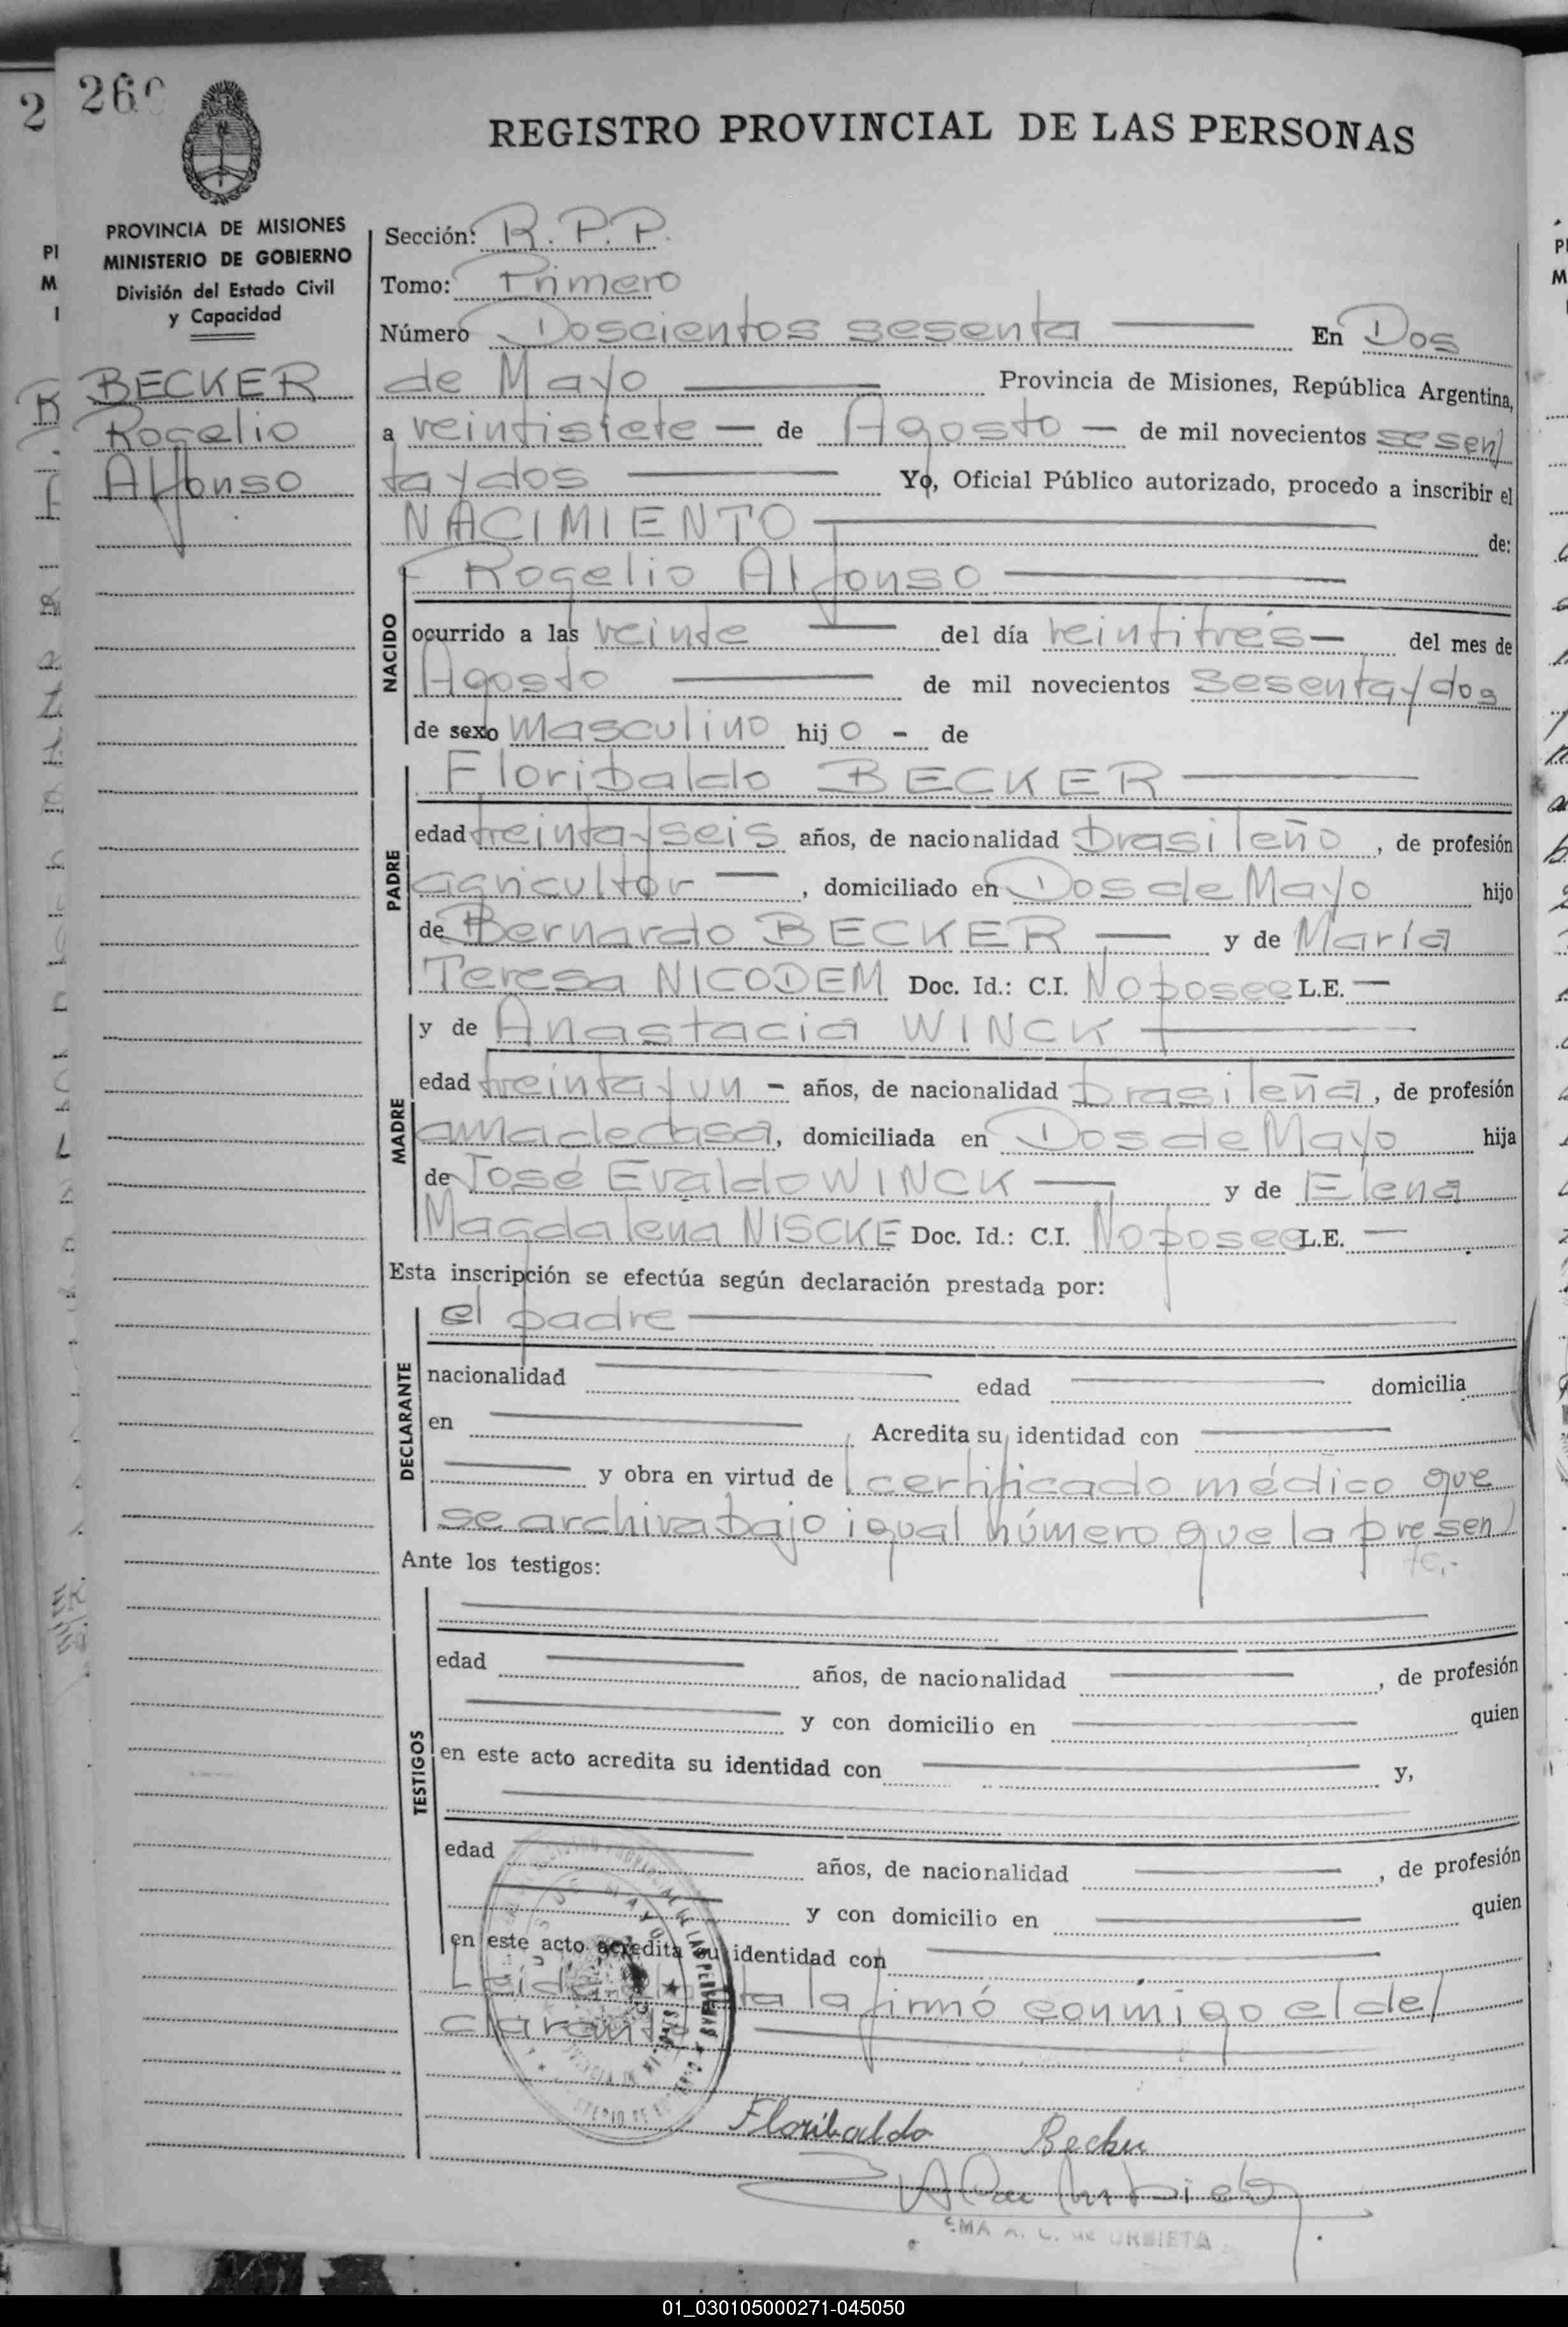 260
REGISTRO PROVINCIAL DE LAS PERSONAS
PROVINCIA DE MISIONES
MINISTERIO DE GOBIERNO
División del Estado Civil
y Capacidad
BECKER
Rogelio
Alfonso
Sección: R. P. P.
Tomo: Primero
Número Doscientos sesenta — En Dos
de Mayo — Provincia de Misiones, República Argentina,
a veintisiete — de Agosto — de mil novecientos sesen
taydos — Yo, Oficial Público autorizado, procedo a inscribir el
NACIMIENTO — de:
NACIDO
Rogelio Alfonso —
ocurrido a las veinte — del día veintitrés — del mes de
Agosto — de mil novecientos sesentaydos
de sexo masculino hijo - de
PADRE
Floribaldo BECKER —
edad treintayseis años, de nacionalidad brasileño, de profesión
agricultor —, domiciliado en Dos de Mayo hijo
de Bernardo BECKER — y de María
Teresa NICODEM Doc. Id.: C.I. No posee L.E. —
MADRE
y de Anastacia WINCK —
edad treintayun - años, de nacionalidad brasileña, de profesión
ama de casa, domiciliada en Dos de Mayo hija
de José Evaldo WINCK — y de Elena
Magdalena NISCKE Doc. Id.: C.I. No posee L.E. —
Esta inscripción se efectúa según declaración prestada por:
DECLARANTE
el padre —
nacionalidad — edad — domicilia
en — Acredita su identidad con —
— y obra en virtud de certificado médico que
se archiva bajo igual número que la presen
te.-
Ante los testigos:
TESTIGOS
edad — años, de nacionalidad —, de profesión
— y con domicilio en — quien
en este acto acredita su identidad con — y,
edad — años, de nacionalidad —, de profesión
— y con domicilio en — quien
en este acto acredita su identidad con —
Leída el acta la firmó conmigo el de
clarante —
Floribaldo Becker
MA A. C. de URBIETA
01_030105000271-045050